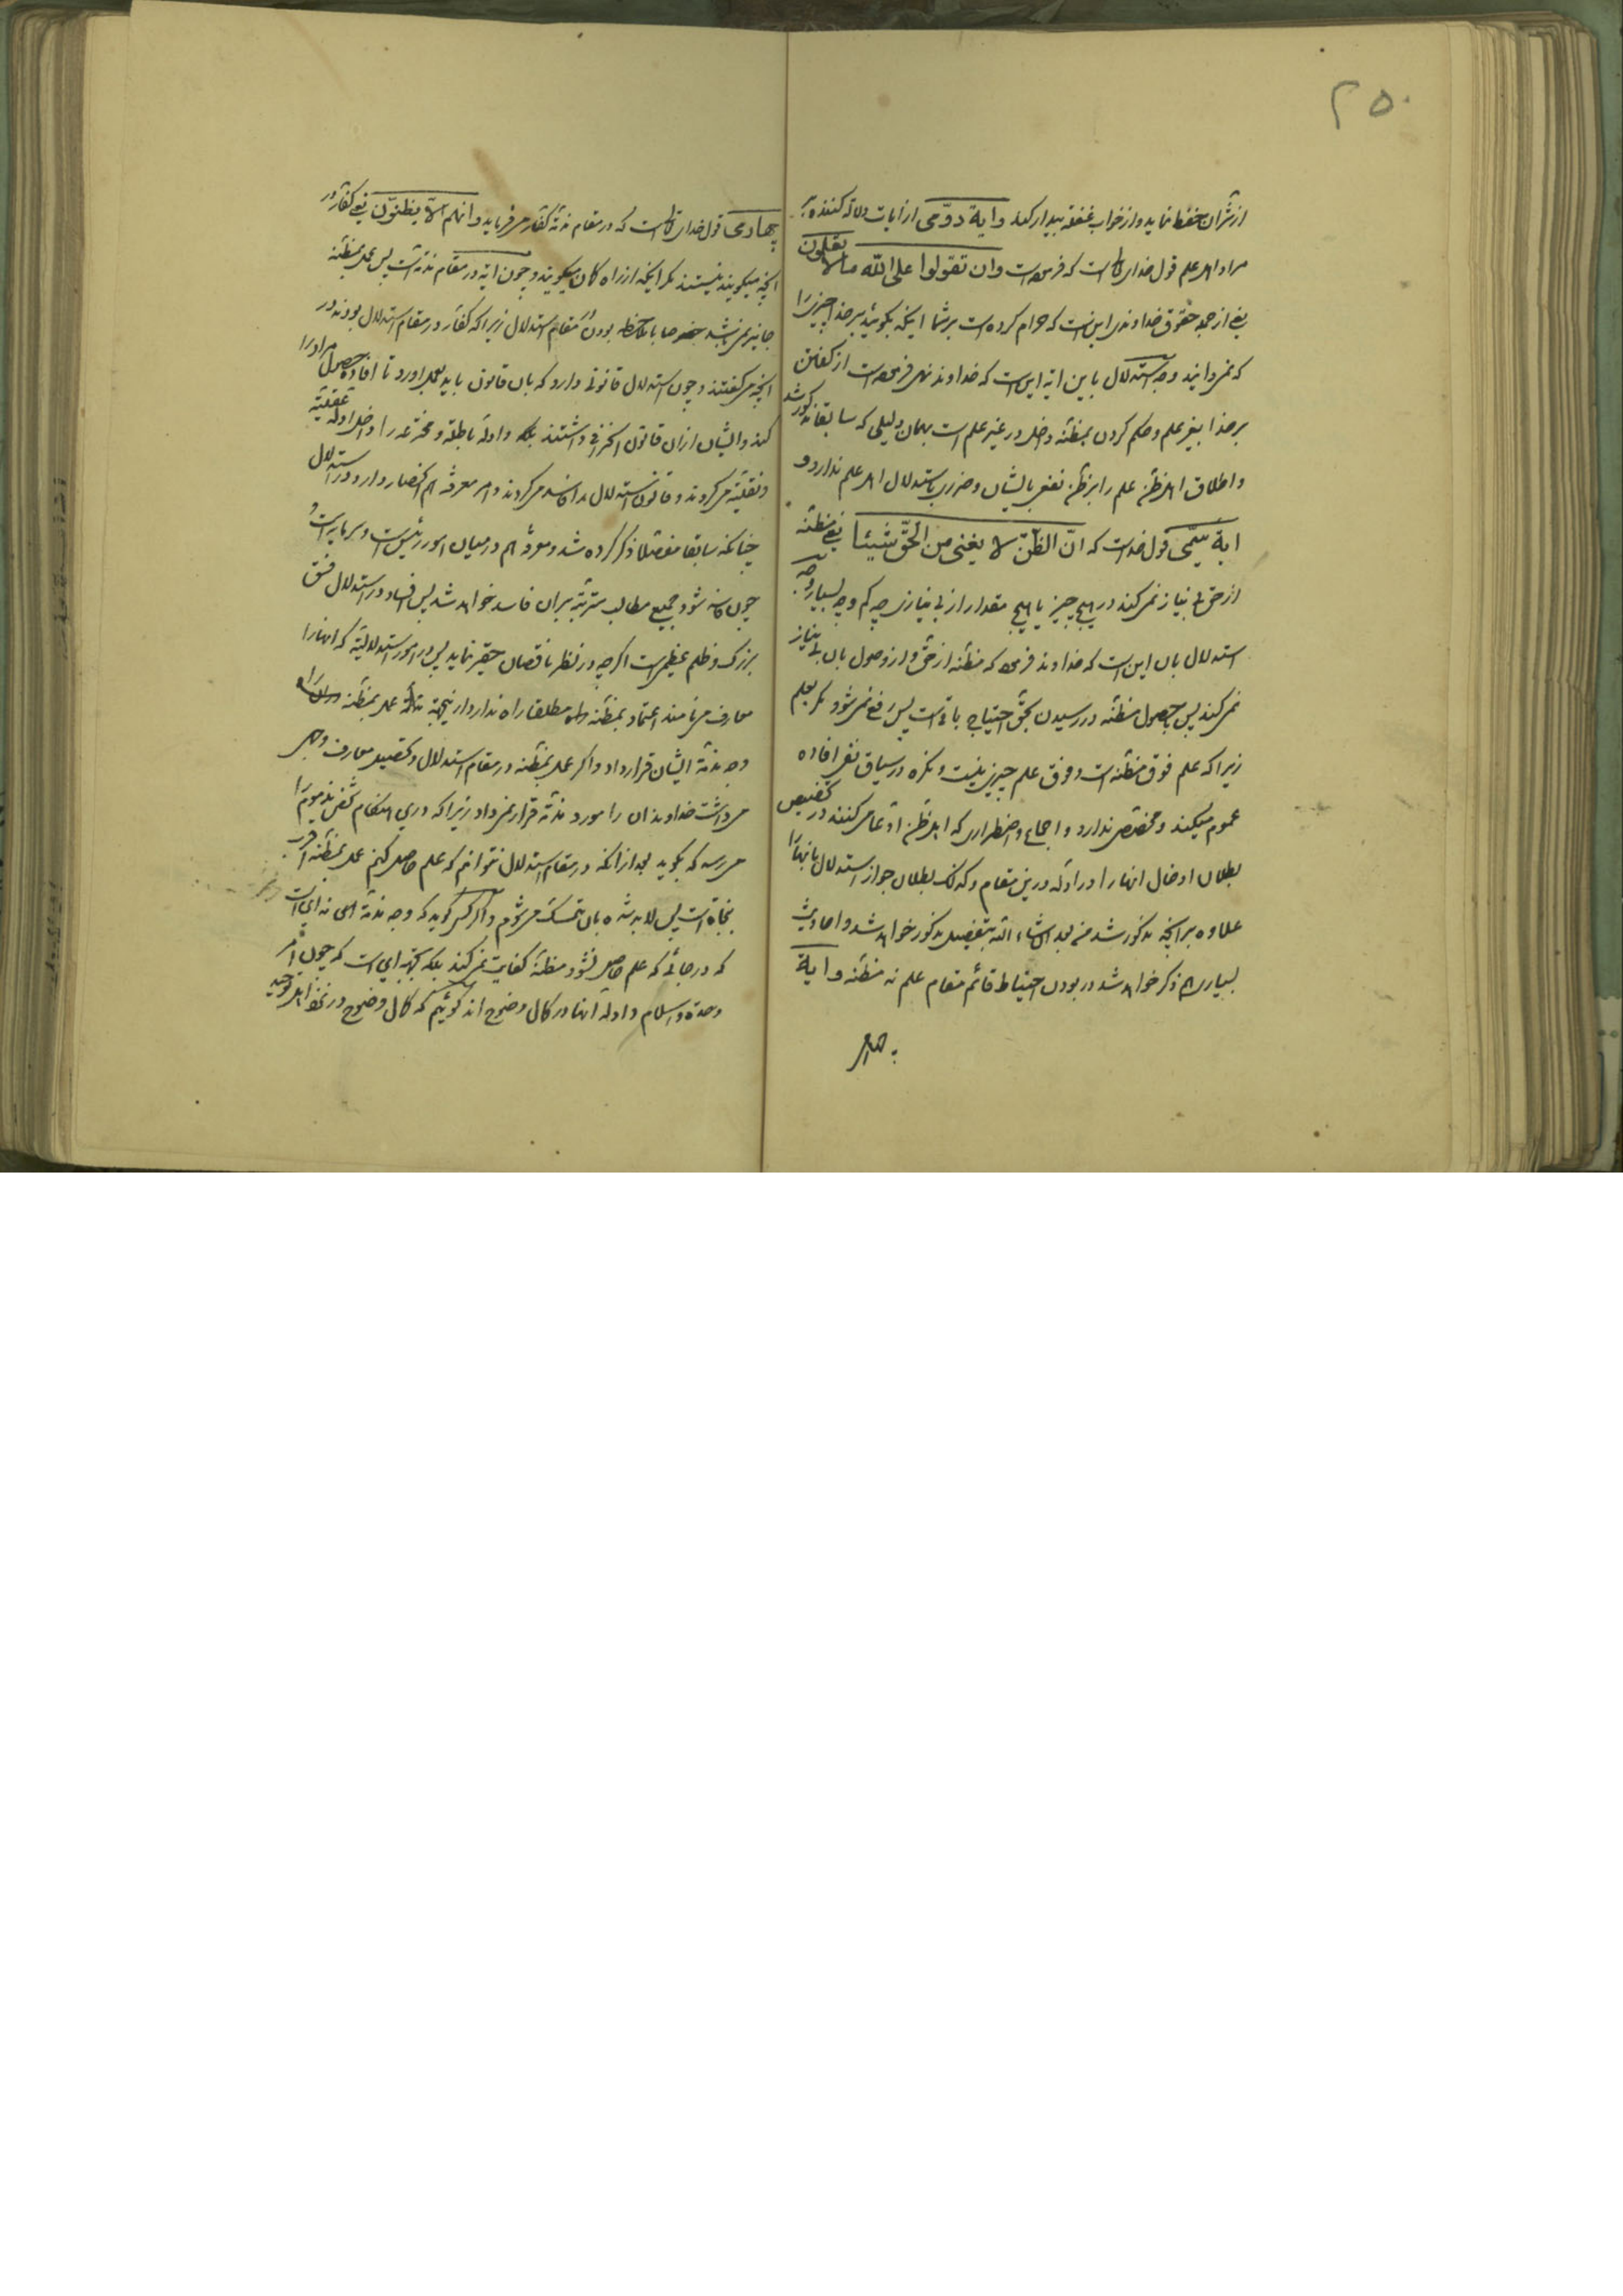 ۲۵۰
از شر آن حفظ نماید و از خواب غفلة بیدار کند و ایة دوّمی از ایات دلالة کننده بر
مراد اهل علم قول خدای تعالی است که فرموده است وان تقولوا علی اللّه مالا تعلمون
یعنی از جمله حقوق خداوندی این است که حرام کرده است بر شما اینکه بگوئید بر خدا چیزیرا
که نمی دانید وجه استدلال باین ایه این است که خداوند نهی فرموده است از گفتن
بر خدا بغیر علم و حکم کردن بمظنّه داخل در غیر علم است بهمان دلیلی که سابقا مذکور شد
و اطلاق اهل ظن علم را بر ظن نفعی بایشان و ضرری باستدلال اهل علم ندارد و
ایة سیّمی قول خداست که انّ الظّنّ لا یغنی من الحقّ شیئا یعنی مظنّه
از حق بی نیاز نمی کند در هیچ چیز یا هیچ مقدار از بی نیازی چه کم و چه بسیار وجه
استدلال بان این است که خداوند فرموده که مظنّه از حق و از وصول بان بی نیاز
نمی کند پس بحصول مظنّه در رسیدن بحق احتیاج باقی است پس رفع نمی شود مگر بعلم
زیرا که علم فوق مظنّه است و فوق علم چیزی نیست و نکره در سیاق نفی افاده
عموم میکند و مخصّصی ندارد و اجماع و اضطراری که اهل ظن ادّعا می کنند در تخصیص
بطلان ادخال انها را در ادلّه درین مقام و کذلک بطلان جواز استدلال بانها را
علاوه بر انچه مذکور شد من بعد انشاء اللّه بتفصیل مذکور خواهد شد و احادیث
بسیاری هم ذکر خواهد شد در بودن احتیاط قائم مقام علم نه مظنّه و ایة
چهارمی قول خدای تعالی است که در مقام مذمّة کفّار می فرماید وان هم الّا یظنّون یعنی کفّار در
انچه میگویند نیستند مگر اینکه از راه گمان میگویند و چون ایه در مقام مذمّة است پس عمل بمظنّه
جایز نمی باشد خصوصا با ملاحظه بودن مقام مقام استدلال زیرا که کفّار در مقام استدلال بودند در
انچه می گفتند و چون استدلال قانونی دارد که بان قانون باید بعمل اورد تا افاده حصول مراد را
کند و ایشان ازان قانون انحرافی داشتند بلکه و ادلّه باطلة و مخترعه را داخل ادلّه عقلیّه
و نقلیّه می کردند و قانون استدلال را فاسد می کردند و امر معرفة هم انحصار دارد در استدلال
چنانکه سابقا مفصّلا ذکر کرده شد و معرفة هم در میان امور رئیس است و سر مایه است و
چون فاسد شود جمیع مطالب مترتّبه بران فاسد خواهد شد پس افساد در استدلال فسق
بزرک و ظلم عظیمی است اگر چه در نظر ناقصان حقیر نماید پس در امور استدلالیّه که انها را
معارف می نامند اعتماد بمظنّه مطلقا راه ندارد از این جهة خداوند عمل بمظنّه را
وجه مذمّة ایشان قرار داد و اگر عمل بمظنّه در مقام استدلال و تحصیل معارف وجهی
می داشت خداوند ان را مورد مذمّة قرار نمی داد زیرا که درین هنگام شخص مذموم را
می رسد که بگوید بعد از انکه در مقام استدلال نتوانم که علم حاصل کنم عمل بمظنّه اقرب
بنجاة است پس لابد شده بان متمسّک می شوم و اگر کسی گوید که وجه مذمّة الهی نه این است
که در جائی که علم حاصل نشود مظنّه کفایت نمی کند بلکه بجهة این است که چون امر
وحدة و اسلام و ادلّه انها در کمال وضوح اند گوئیم که کمال وضوح در نظر اهل توحید
چهار